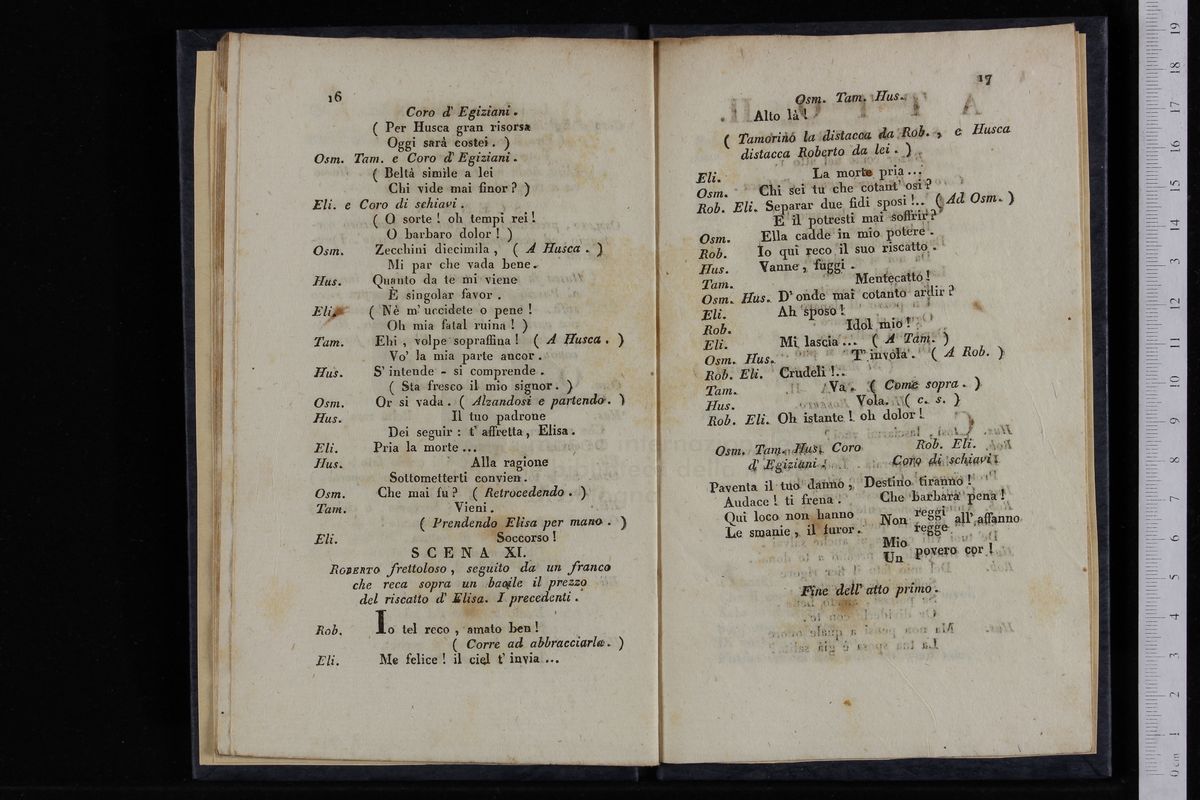 16
Coro d' Egiziani.
( Per Husca gran risorsa
Oggi sarà costei. )
Osm. Tam. e Coro d' Egiziani.
( Beltà simile a lei
Chi vide mai finor? )
Eli. e Coro di schiavi.
( O sorte! oh tempi rei!
O barbaro dolor! )
Osm. Zecchini diecimila, ( A Husca. )
Mi par che vada bene.
Hus. Quanto da te mi viene
È singolar favor.
Eli. ( Nè m' uccidete o pene!
Oh mia fatal ruina! )
Tam. Ehi, volpe sopraffina! ( A Husca. )
Vo' la mia parte ancor.
Hus. S' intende - si comprende.
( Sta fresco il mio signor. )
Osm. Or si vada. ( Alzandosi e partendo. )
Hus. Il tuo padrone
Dei seguir: t' affretta, Elisa.
Eli. Pria la morte...
Hus. Alla ragione
Sottometterti convien.
Osm. Che mai fu? ( Retrocedendo. )
Tam. Vieni.
( Prendendo Elisa per mano. )
Eli. Soccorso!
SCENA XI.
ROBERTO frettoloso, seguito da un franco
che reca sopra un bacile il prezzo
del riscatto d' Elisa. I precedenti.
Rob. Io tel reco, amato ben!
( Corre ad abbracciarla. )
Eli. Me felice! il ciel t' invia...
17
Osm. Tam. Hus.
Alto là!
( Tamorino la distacca da Rob., e Husca
distacca Roberto da lei. )
Eli. La morte pria...
Osm. Chi sei tu che cotant' osi?
Rob. Eli. Separar due fidi sposi!.. ( Ad Osm. )
E il potresti mai soffrir?
Osm. Ella cadde in mio potere.
Rob. Io qui reco il suo riscatto.
Hus. Vanne, fuggi.
Tam. Mentecatto!
Osm. Hus. D' onde mai cotanto ardir?
Eli. Ah sposo!
Rob. Idol mio!
Eli. Mi lascia... ( A Tam. )
Osm. Hus. T' invola. ( A Rob. )
Rob. Eli. Crudeli!..
Tam. Va. ( Come sopra. )
Hus. Vola. ( c. s. )
Rob. Eli. Oh istante! oh dolor!
Osm. Tam. Hus. Coro
d' Egiziani.
Paventa il tuo danno,
Audace! ti frena.
Qui loco non hanno
Le smanie, il furor.
Rob. Eli.
Coro di schiavi.
Destino tiranno!
Che barbara pena!
Non reggi all' affanno
regge
Mio povero cor!
Un
Fine dell' atto primo.